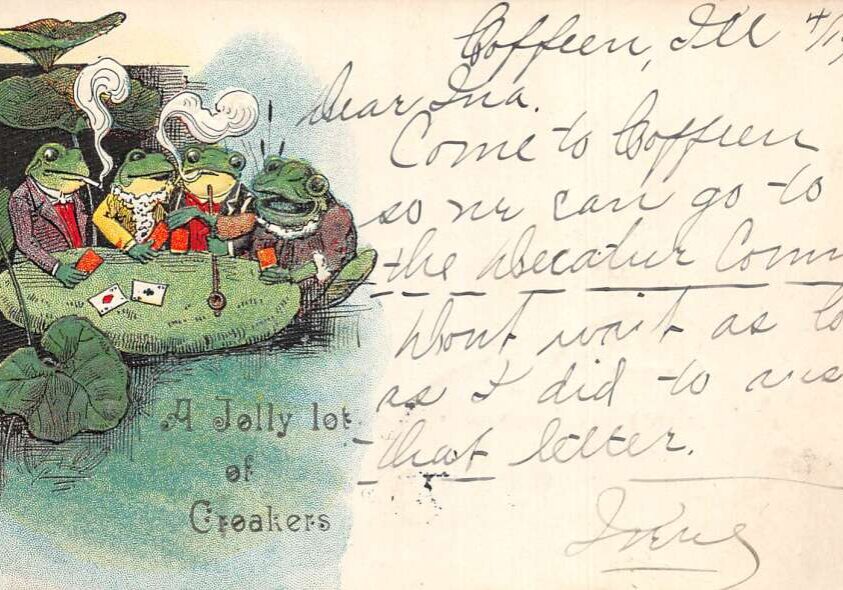 Coffeen, Ill 4/1
Dear Ina.
Come to Coffeen
so we can go to
the Decatur Conv
Dont wait as lo
as I did to ans
that letter.
Irene
A Jolly lot
of
Croakers